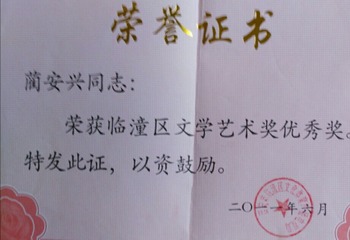 荣誉证书
蔺安兴同志:
荣获临潼区文学艺术奖优秀奖。
特发此证，以资鼓励。
二〇一一年六月